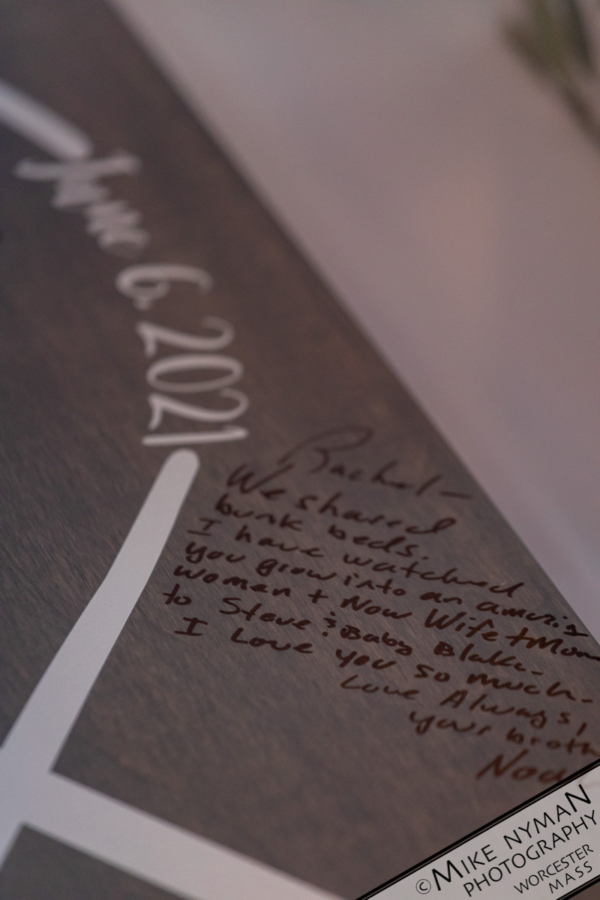 June 6, 2021
Rachel-
We shared
bunk beds.
I have watched
you grow into an amazing
woman + Now Wife + Mom
to Steve & Baby Blake.
I Love you so much.
Love Always,
your broth
© MIKE NYMAN
PHOTOGRAPHY
WORCESTER
MASS